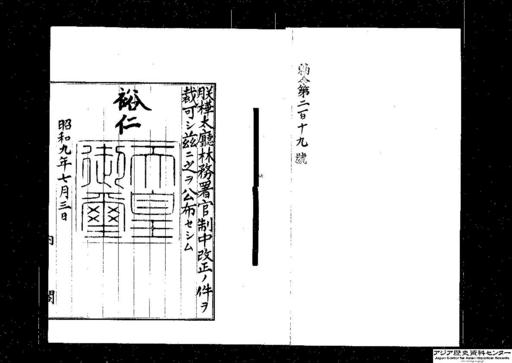 勅令第二百十九號
朕樺太廳林務署官制中改正ノ件ヲ
裁可シ茲ニ之ヲ公布セシム
裕仁
天皇
御璽
昭和九年七月三日
内閣
アジア歴史資料センター
Japan Center for Asian Historical Records